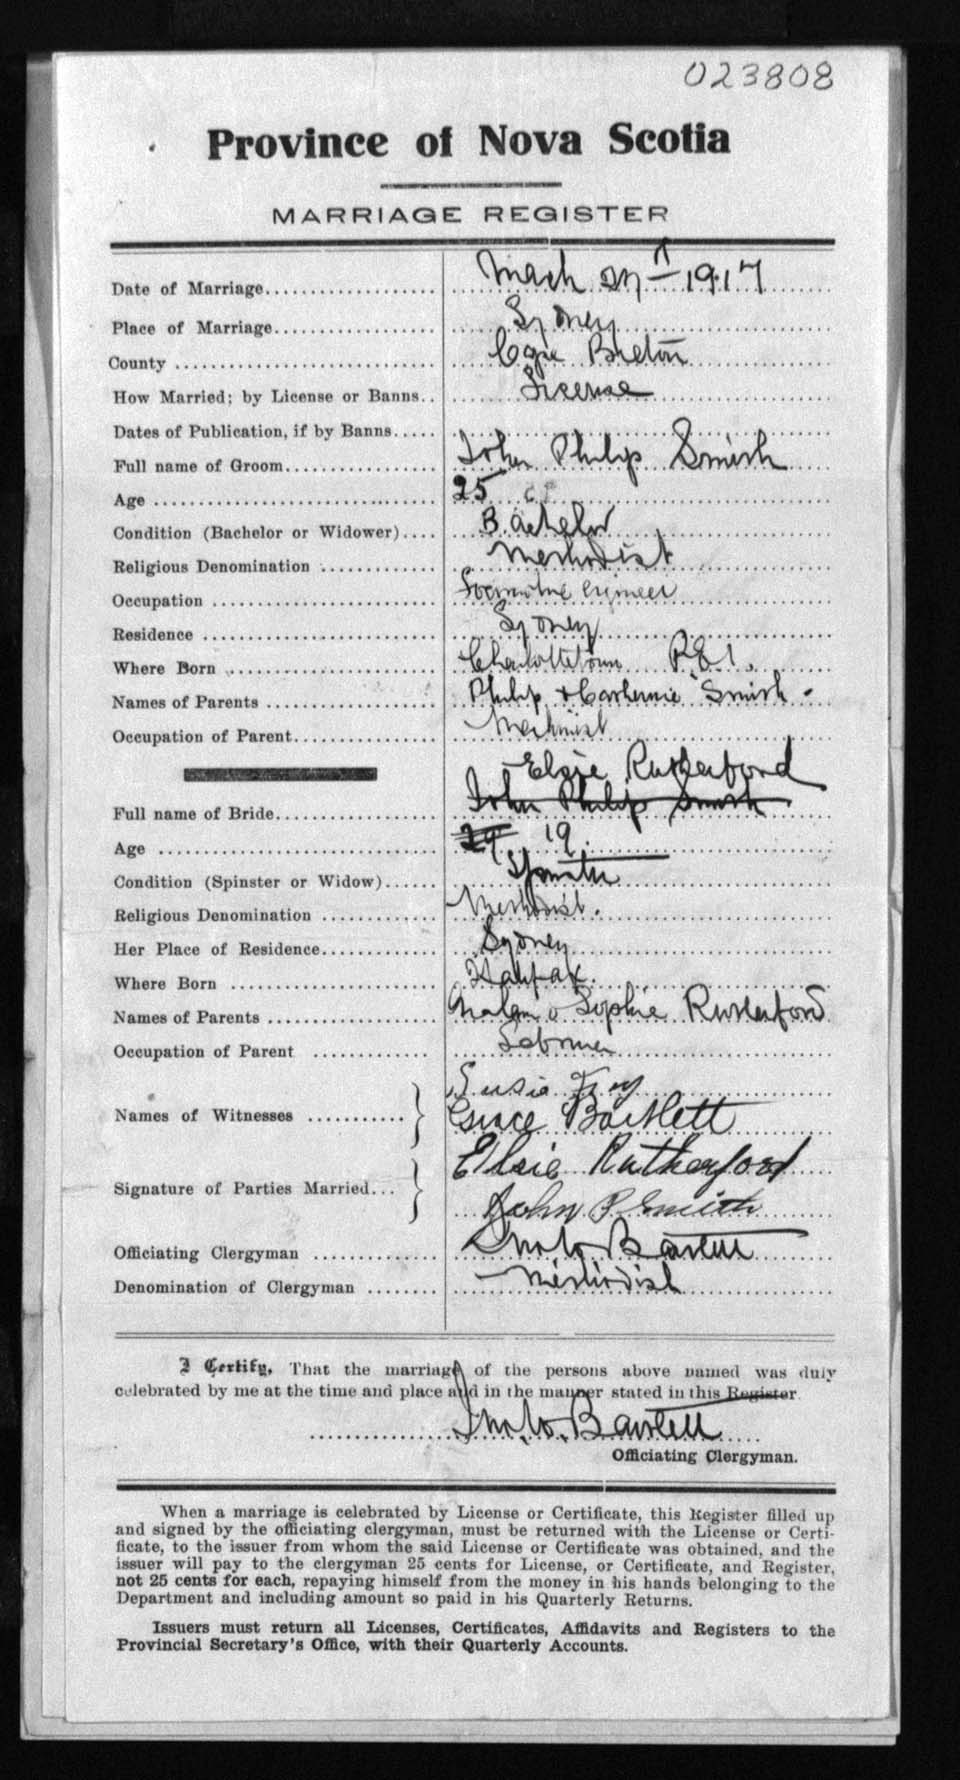 023808
Province of Nova Scotia
MARRIAGE REGISTER
Date of Marriage.................... March 27th 1917
Place of Marriage................... Sydney
County ............................. Cape Breton
How Married; by License or Banns.. License
Dates of Publication, if by Banns.....
Full name of Groom.................. John Philip Smith
Age ................................ 25
Condition (Bachelor or Widower).... Bachelor
Religious Denomination ............. Methodist
Occupation ......................... Locomotive engineer
Residence .......................... Sydney
Where Born ......................... Charlottetown P.E.I.
Names of Parents ................... Philip & Catherine Smith.
Occupation of Parent................ Machinist
Elsie Rutherford
Full name of Bride.................. John Philip Smith
Age ................................ 29 19
Condition (Spinster or Widow)...... Spinster
Religious Denomination ............. Methodist.
Her Place of Residence............. Sydney
Where Born ......................... Halifax.
Names of Parents ................... & Sophie Rutherford
Occupation of Parent ............... Laborer
Susie
Names of Witnesses ........... } Grace Bartlett
Elsie Rutherford
Signature of Parties Married... }
John P Smith
Officiating Clergyman .............. Jno W Bartlett
Denomination of Clergyman ........ Methodist
I Certify, That the marriage of the persons above named was duly
celebrated by me at the time and place and in the manner stated in this Register.
Jno. W. Bartlett
Officiating Clergyman.
When a marriage is celebrated by License or Certificate, this Register filled up
and signed by the officiating clergyman, must be returned with the License or Certi-
ficate, to the issuer from whom the said License or Certificate was obtained, and the
issuer will pay to the clergyman 25 cents for License, or Certificate, and Register,
not 25 cents for each, repaying himself from the money in his hands belonging to the
Department and including amount so paid in his Quarterly Returns.
Issuers must return all Licenses, Certificates, Affidavits and Registers to the
Provincial Secretary's Office, with their Quarterly Accounts.